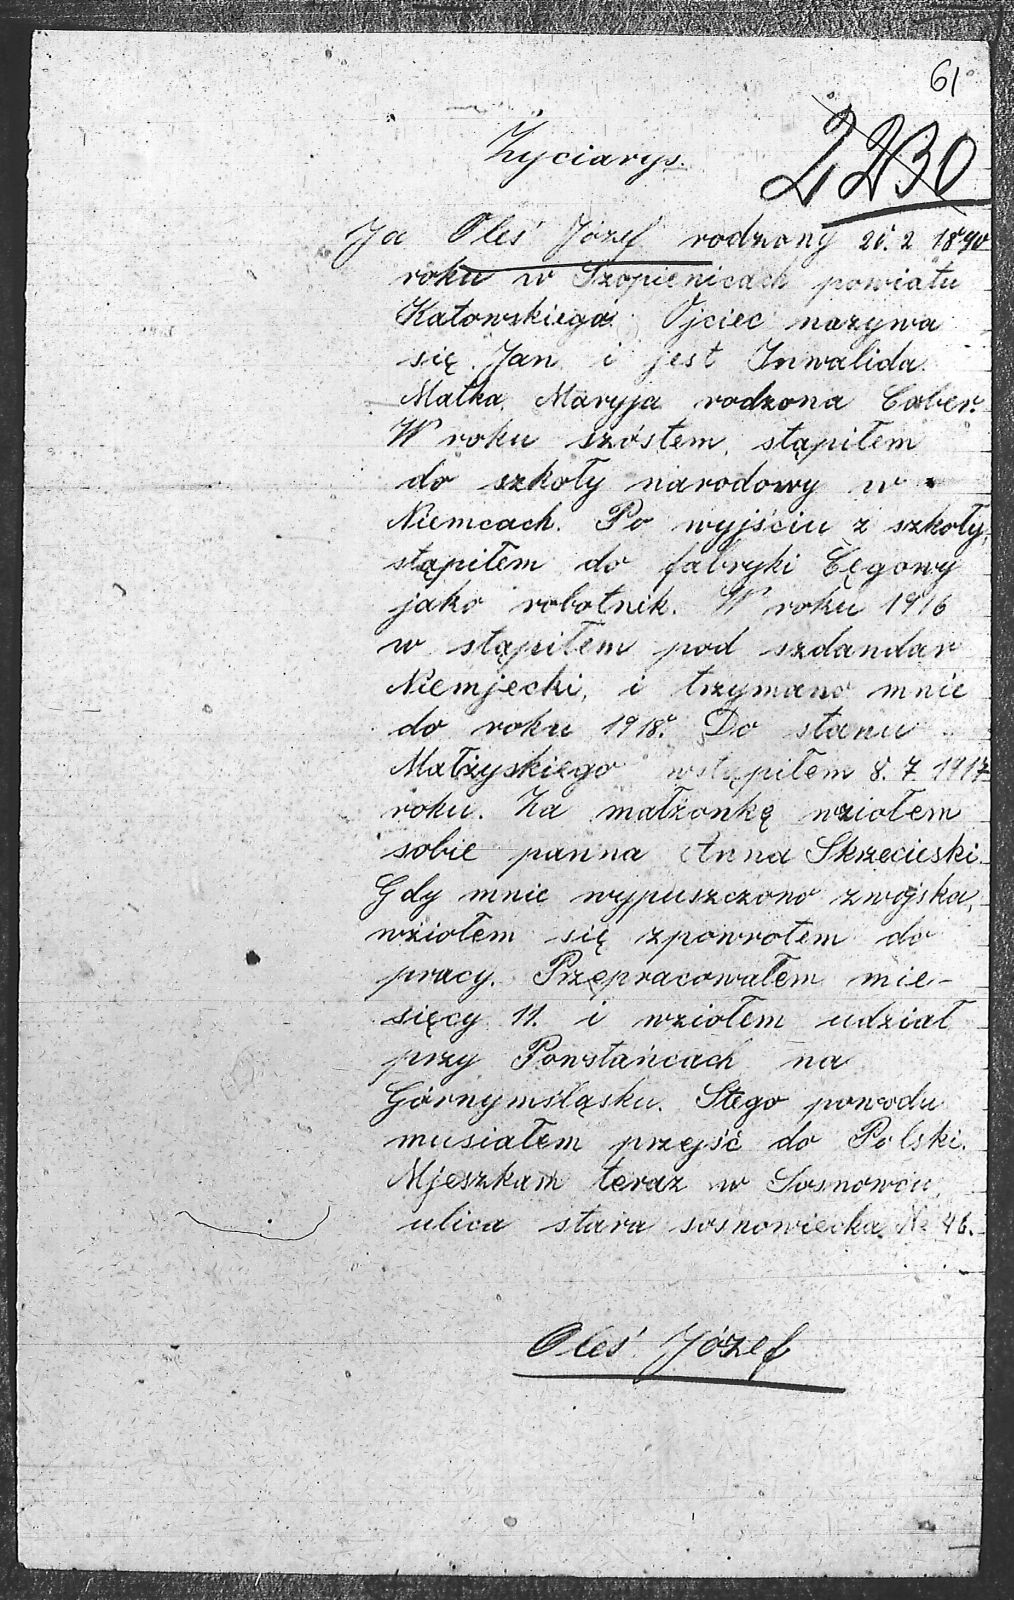 61
Życiarys.
2230
Ja Oleś Józef rodzony 1890
roku w Szopienicach powiatu
Katowskiego. Ojciec nazywa
się Jan i jest Inwalida.
Matka Maryja rodzona
W roku szóstem, stąpiłem
do szkoły narodowy w
Niemcach. Po wyjściu z szkoły,
stąpiłem do fabryki Cęgowy
jako robotnik. W roku 1916
w stąpiłem pod szdandar
Niemjecki, i trzymano mnie
do roku 1918. Do stanu
Małżyskiego wstąpiłem 8. 7. 1917
roku. Za małżonkę wziołem
sobie panna Anna Skrzecieski.
Gdy mnie wypuszczono zwojska,
wziołem się zpowrotem do
pracy. Przepracowałem mie-
sięcy 11. i wziołem udział
przy Powstańcach na
Górnymśląsku. Stego powodu
musiałem przejść do Polski.
Mjeszkam teraz w Sosnowcu,
ulica stara sosnowiecka № 46.
Oleś Józef